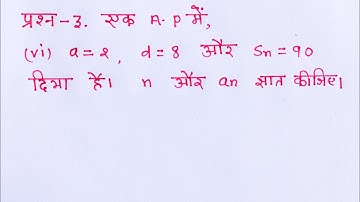 प्रश्न-3. एक A.P में,
(vi) a=2, d=8 और Sn=90
दिया हैं। n और an ज्ञात कीजिए।